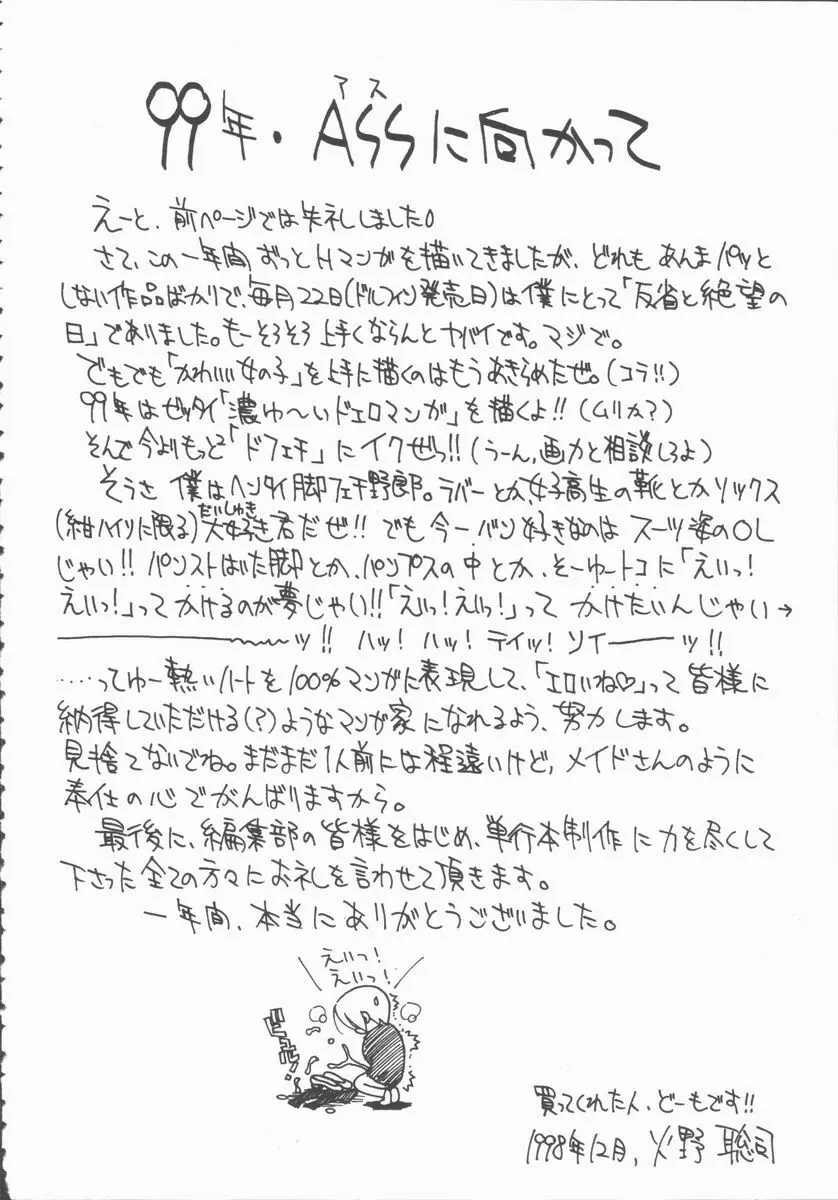 アス
99年・ASSに向かって
えーと、前ページでは失礼しました。
さて、この一年間ずっとHマンガを描いてきましたが、どれもあんまパッと
しない作品ばかりで、毎月22日(ドルフィン発売日)は僕にとって「反省と絶望の
日」でありました。もーそろそろ上手くならんとヤバイです。マジで。
でもでも「かわいい女の子」を上手に描くのはもうあきらめたぜ。(コラ!!)
99年はゼッタイ「濃ゆ〜いドエロマンガ」を描くよ!!(ムリかな?)
そんで今よりもっと「ドフェチ」にイクぜっ!!(うーん、画力と相談しろよ)
そうさ 僕はヘンタイ脚フェチ野郎。ラバーとか、女子高生の靴とかソックス
(紺ハイソに限る)大好き君だぜ!!でも今一バン好きなのは スーツ姿のOL
だいしゅき
じゃい!!パンストはいた脚とか、パンプスの中とか、そーゆートコに「えいっ!
えいっ!」って かけるのが夢じゃい!!「えいっ!えいっ!」って かけたいんじゃい→
――――――〜〜〜ッ!! ハッ! ハッ! テイッ! ソイ―――ッ!!
……ってゆー熱いハートを100%マンガに表現して、「エロいね♡」って皆様に
納得していただける(?)ようなマンガ家になれるよう、努力します。
見捨てないでね。まだまだ1人前には程遠いけど、メイドさんのように
奉仕の心でがんばりますから。
最後に、編集部の皆様をはじめ、単行本制作に力を尽くして
下さった全ての方々にお礼を言わせて頂きます。
一年間、本当にありがとうございました。
えいっ!
えいっ!
買ってくれた人、どーもです!!
1998年12月、火野 聡司